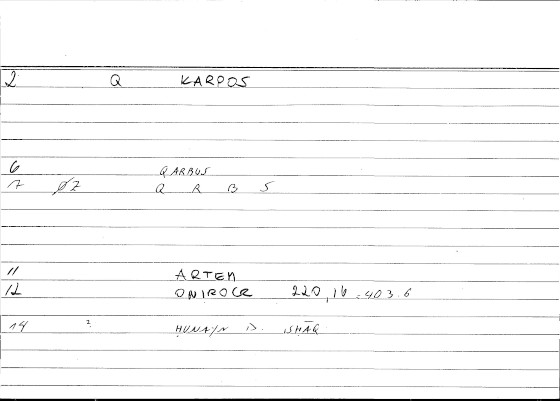 2 Q KARPOS
6 QARBUS
7 02 Q R B S
11 ARTEM
12 ONIROCR 220,16 = 403 6
14 ? HUNAYN B. ISHĀQ